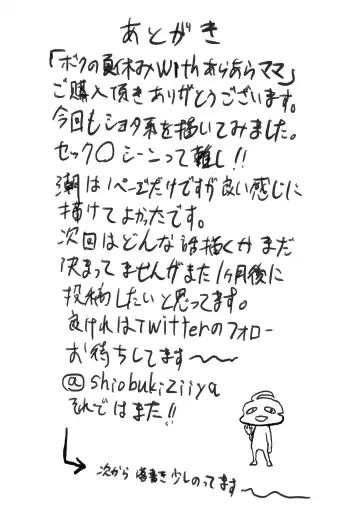 あとがき
「ボクの夏休みwithあらあらママ」
ご購入頂きありがとうございます。
今回もショタ系を描いてみました。
セック〇シーンって難し!!
潮は1ページだけですが良い感じに
描けてよかったです。
次回はどんな話描くかまだ
決まってませんがまた1ヶ月後に
投稿したいと思ってます。
良ければTwitterのフォロー
お待ちしてます〜〜
@shiobukiziiya
それではまた!!
次から落書き少しのってます〜